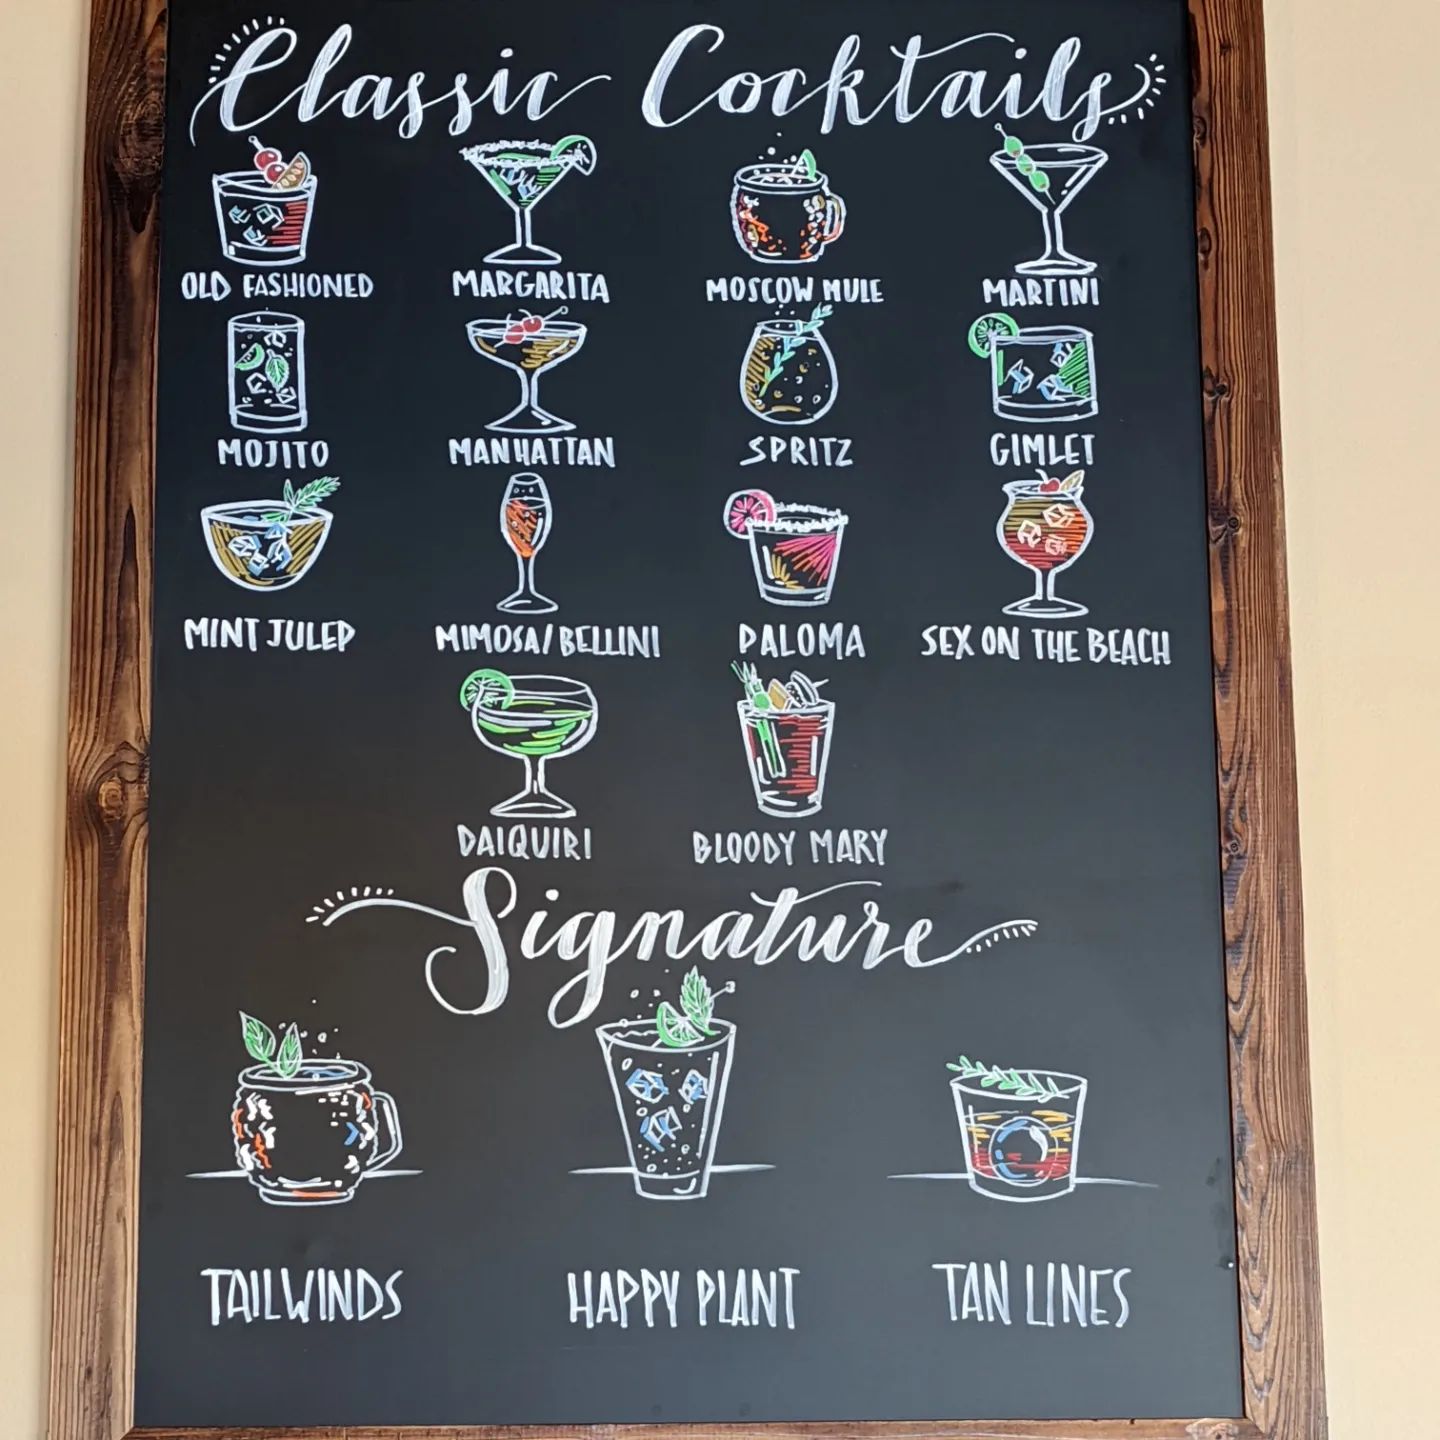 Classic Cocktails
OLD FASHIONED MARGARITA MOSCOW MULE MARTINI
MOJITO MANHATTAN SPRITZ GIMLET
MINT JULEP MIMOSA/BELLINI PALOMA SEX ON THE BEACH
DAIQUIRI BLOODY MARY
Signature
TAILWINDS HAPPY PLANT TAN LINES